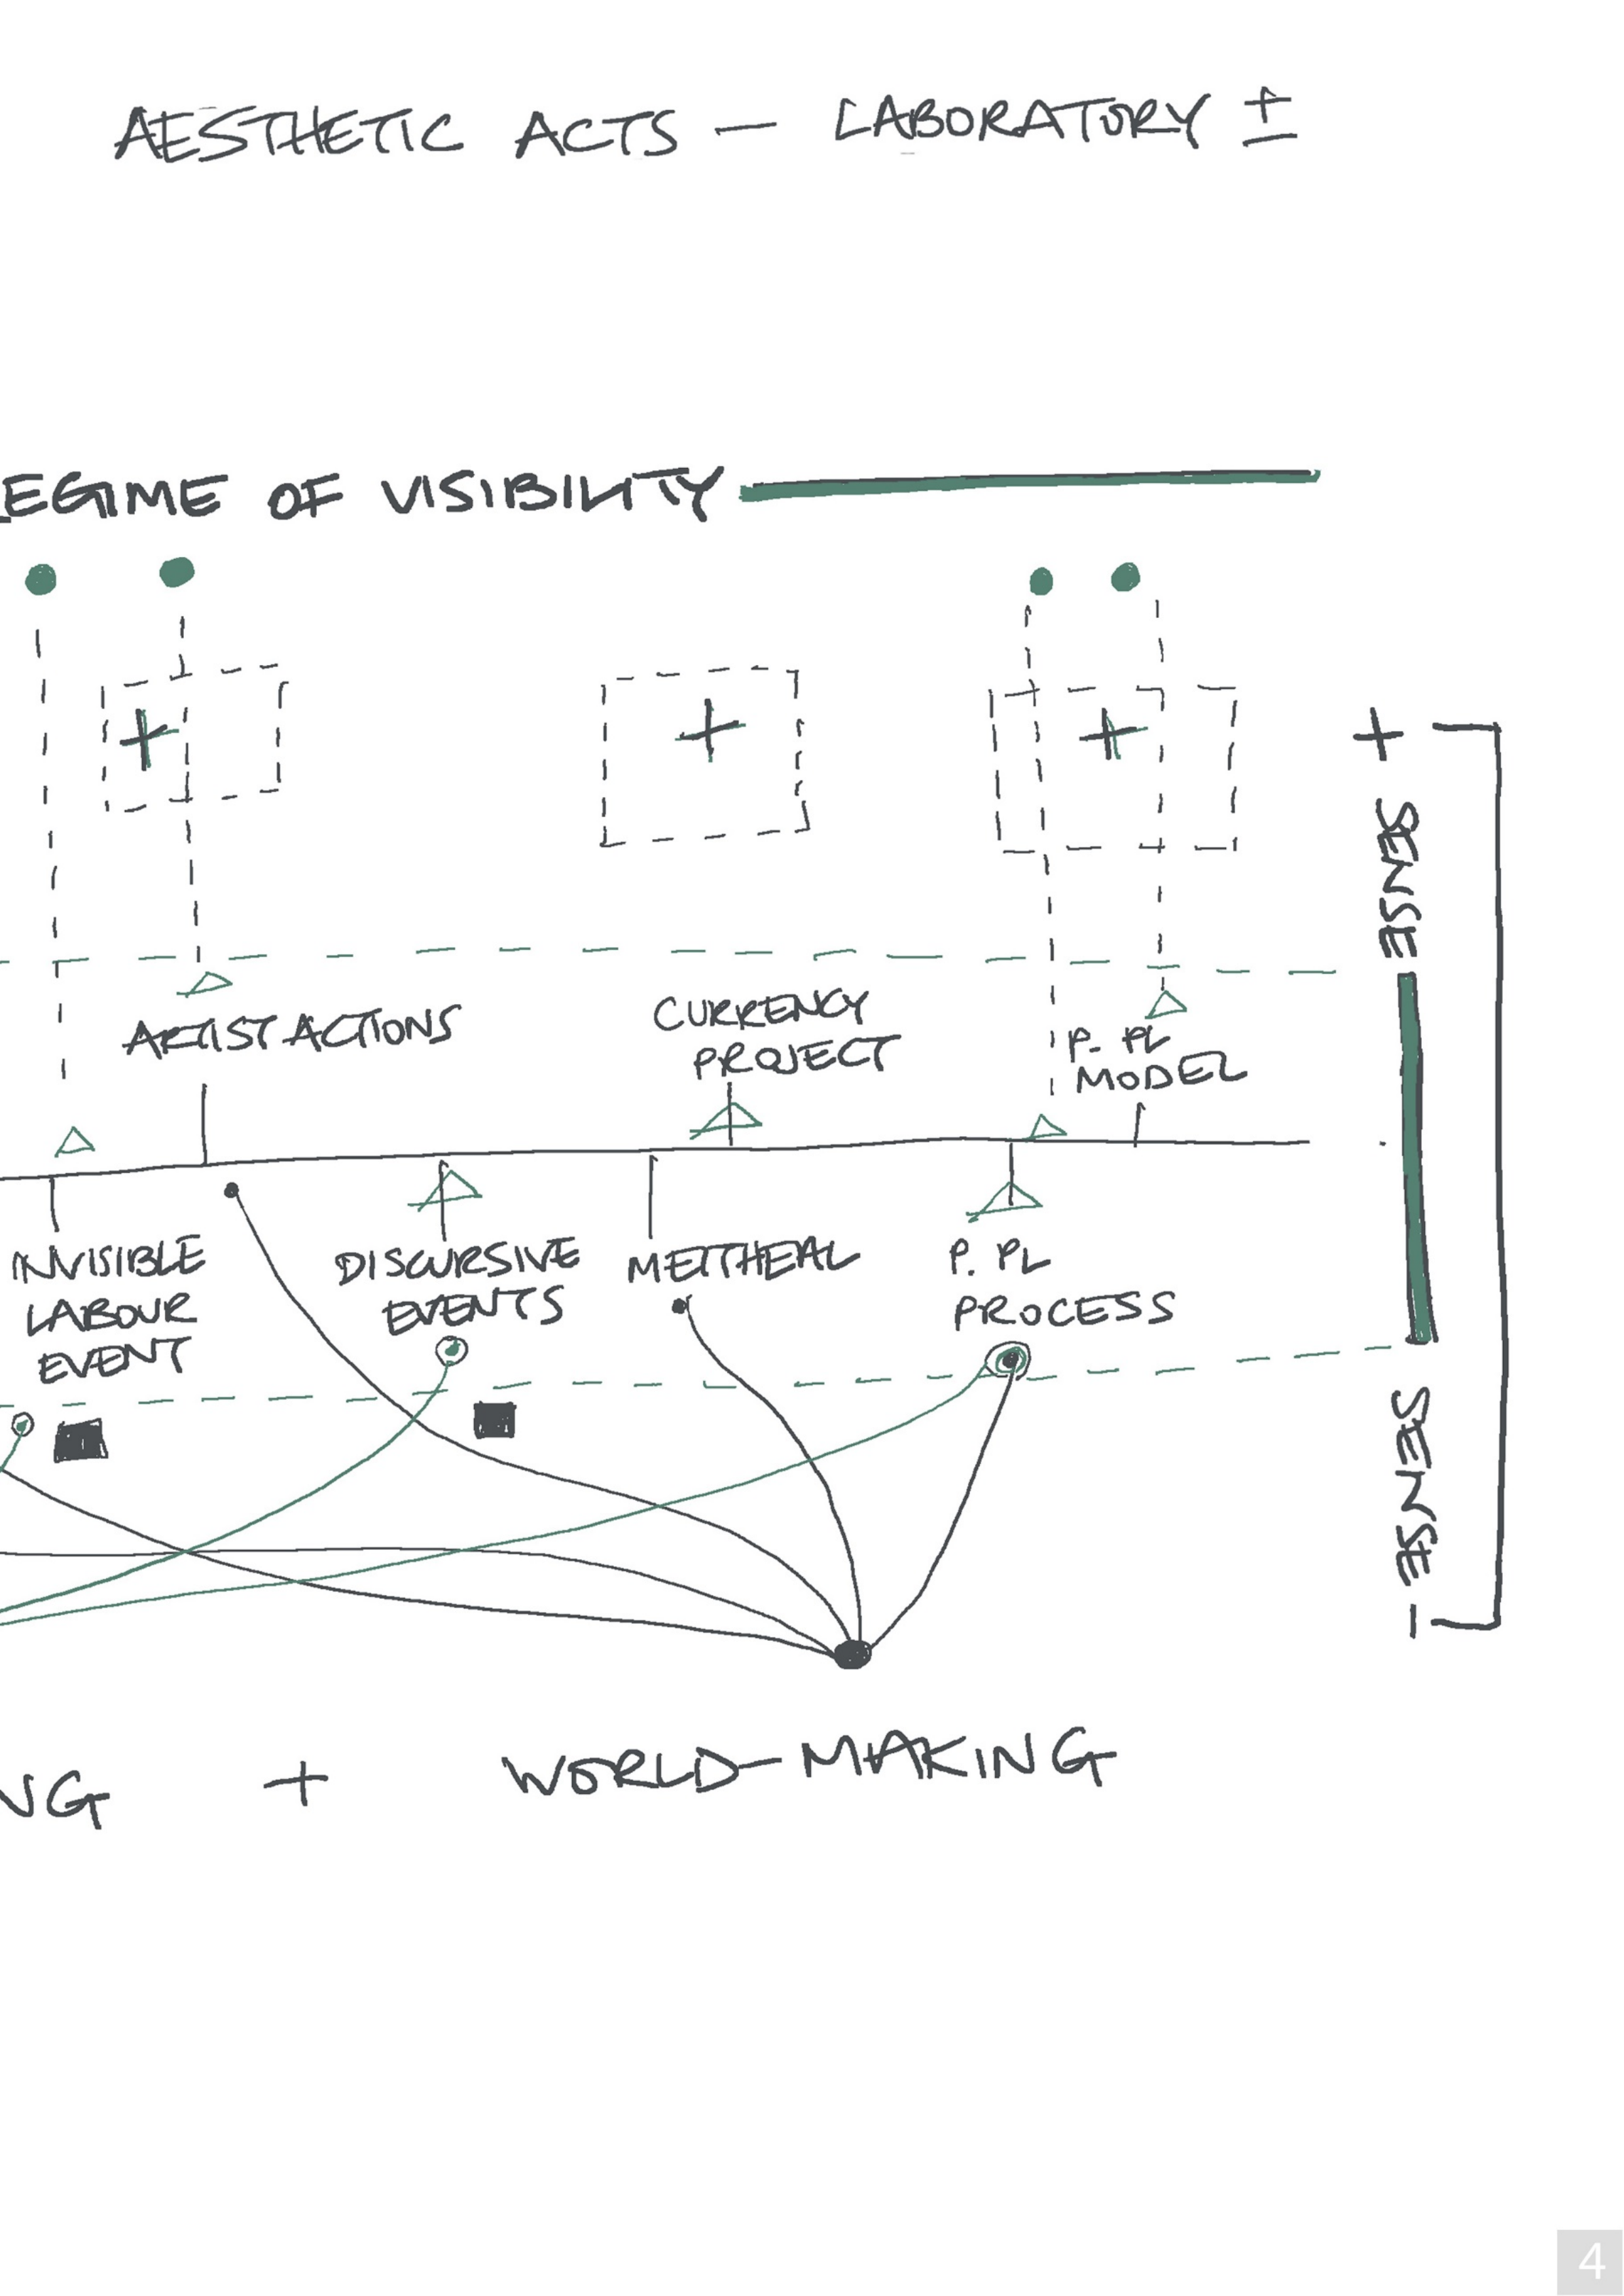 AESTHETIC ACTS — LABORATORY ±
EGIME OF VISIBILITY
+ + +
+ SENSE
ARTIST ACTIONS
CURRENCY
PROJECT
P. PL
MODEL
INVISIBLE
LABOUR
EVENT
DISCURSIVE
EVENTS
MEITHEAL
P. PL
PROCESS
SENSE –
NG + WORLD-MAKING
4